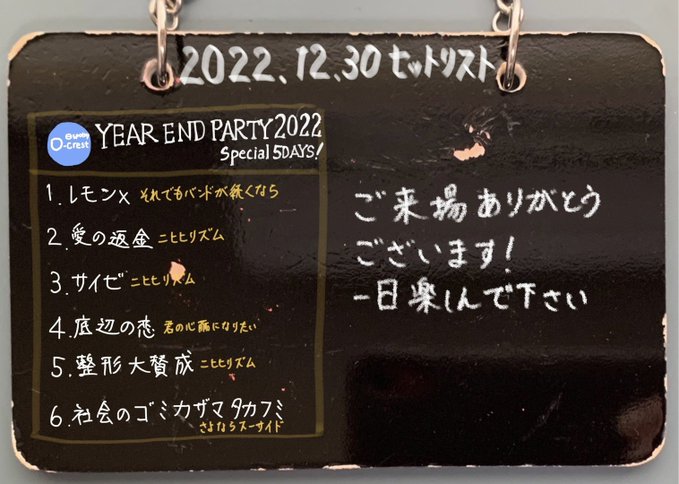 2022.12.30 セットリスト
Shibuya
O-crest
YEAR END PARTY 2022
Special 5DAYS!
1.レモンx それでもバンドが続くなら
2.愛の返金 ニヒヒリズム
3.サイゼ ニヒヒリズム
4.底辺の恋 君の心臓になりたい
5.整形大賛成 ニヒヒリズム
6.社会のゴミカザマタカフミ
さよならスーサイド
ご来場ありがとう
ございます!
一日楽しんで下さい